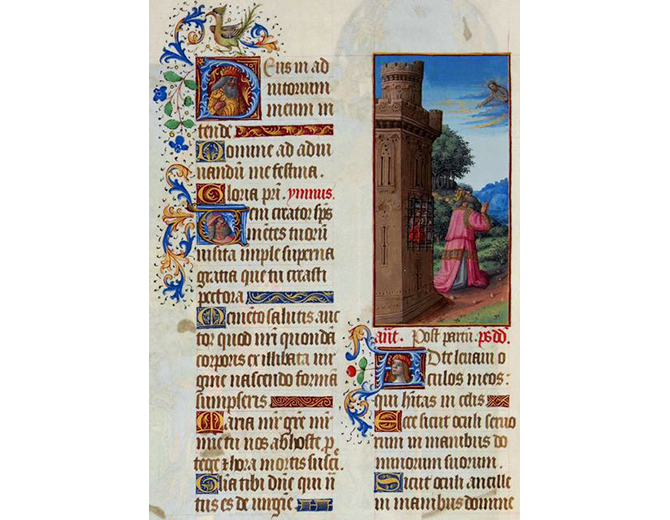 Deus in ad
iutorium
meum in
tende
Domine ad adiu
uandū me festina.
Gloria pri. ymnus.
Veni creator sp̄s
mētes tuorū
uisita imple superna
gratia que tu creasti
pectora
Memēto salutis auc
tor quod nr̄i quondā
corporis ex illibata uir
gine nascendo formā
sumpseris
Maria mr̄ gr̄e mr̄
mi͞e tu nos ab hoste p
tege et hora mortis susci.
Gl̄ia tibi dn̄e qui n
tus es de uirgīe
ant. Post partū. ps dd.
Ad te leuaui o
culos meos:
qui hītas in celis
Ecce sicut oculi seruo
rum in manibus do
minorum suorum.
Sicut oculi ancille
in manibus domine